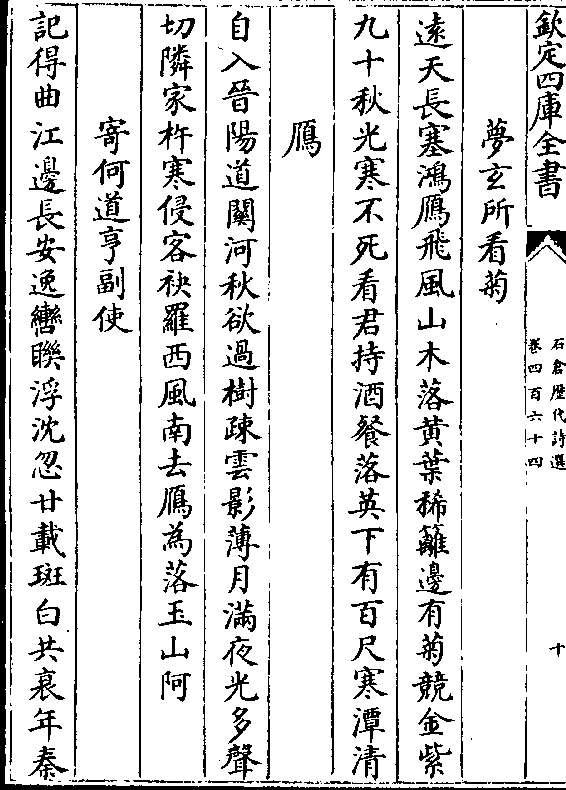 欽定四庫全書
石倉歷代詩選
卷四百六十四
十
夢玄所看菊
遠天長塞鴻鴈飛風山木落黄葉稀籬邊有菊競金紫
九十秋光寒不死看君持酒餐落英下有百尺寒潭清
鴈
自入晉陽道闗河秋欲過樹疎雲影薄月滿夜光多聲
切隣家杵寒侵客袂羅西風南去鴈為落玉山阿
寄何道亨副使
記得曲江邊長安逸轡聨浮沈忽廿載斑白共衰年秦